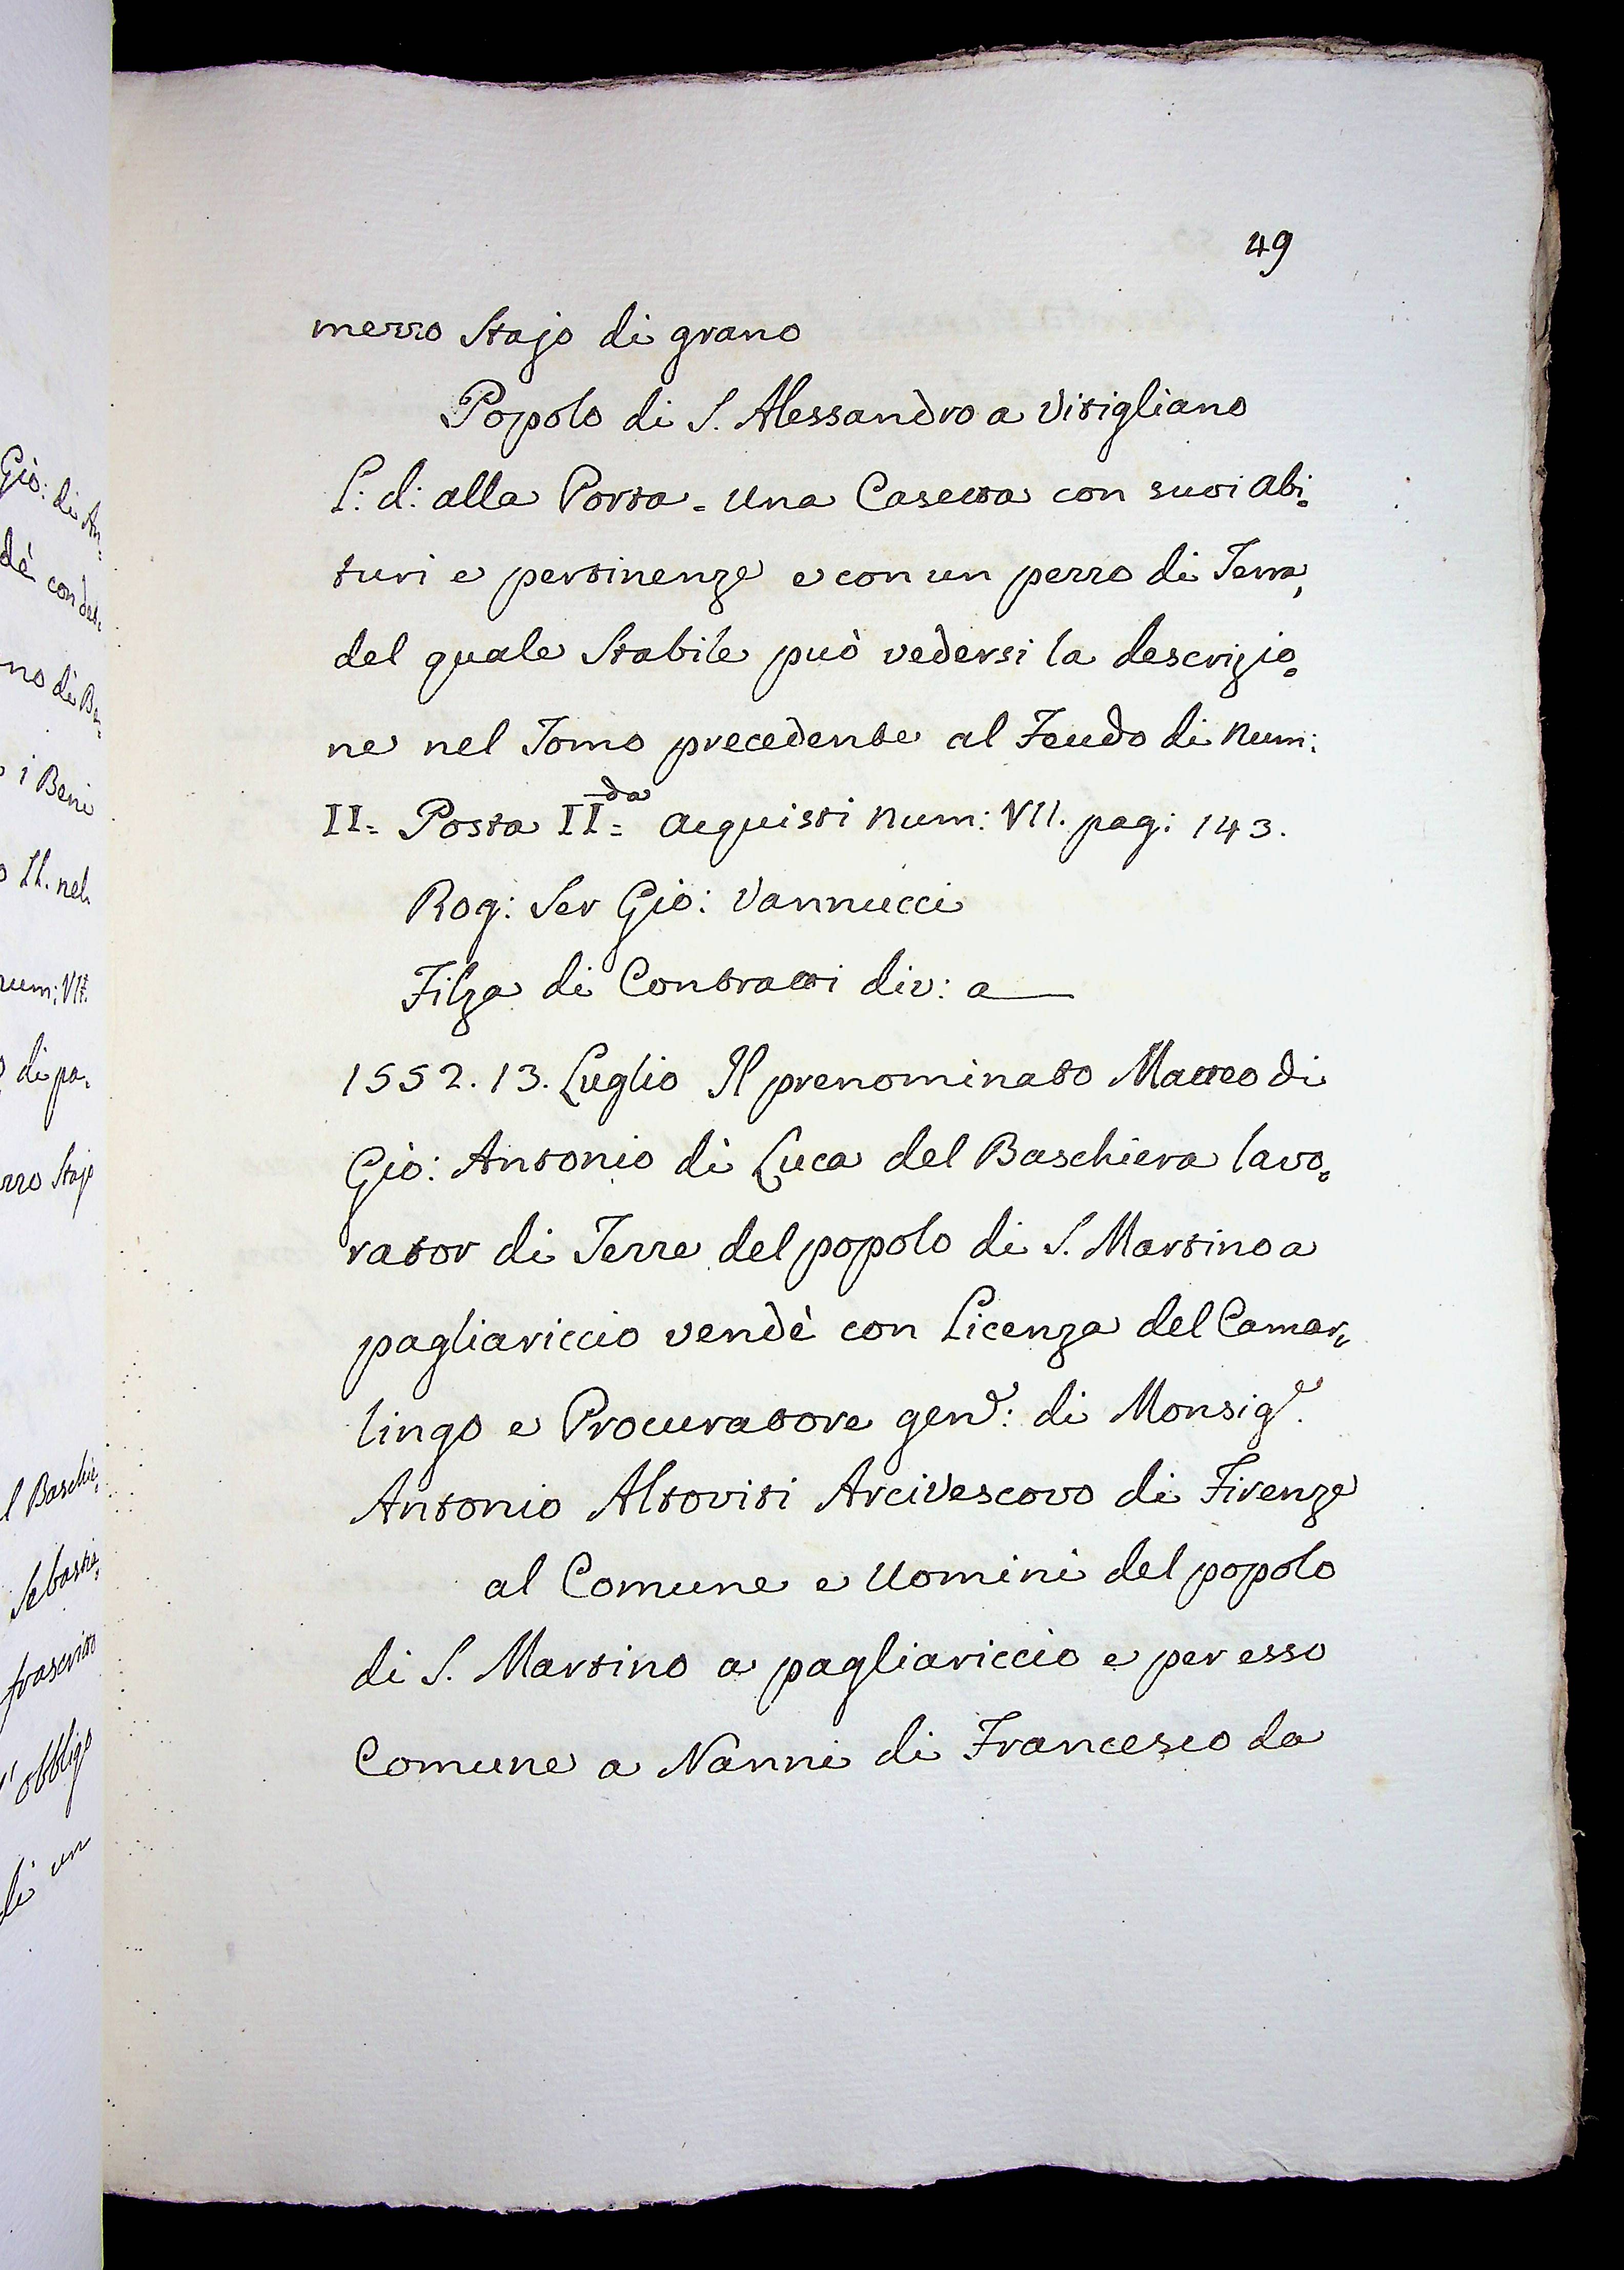 Gio: di An=
dè con des=
no di Ba=
i Beni
II. nel
num: VII.
di pa=
zzo Stajo
l Baschie=
Sebasti=
frascritto
l'obbligo
di un
49
mezzo Stajo di grano
Popolo di S. Alessandro a Vitigliano
L: d: alla Porta = una Casetta con suoi abi=
turi e pertinenze e con un pezzo di Terra,
del quale Stabile può vedersi la descrizio=
ne nel Tomo precedente al Feudo di num:
II= Posta II=da acquisti num: VII. pag: 143.
Rog: Ser Gio: Vannucci
Filza di Contratti div: a
1552. 13. Luglio Il prenominato Matteo di
Gio: Antonio di Luca del Baschiera lavo=
rator di Terre del popolo di S. Martino a
pagliariccio vendè con Licenza del Camar=
lingo e Procuratore gen.e: di Monsig.e
Antonio Altoviti Arcivescovo di Firenze
al Comune e Uomini del popolo
di S. Martino a pagliariccio e per esso
Comune a Nanni di Francesco da